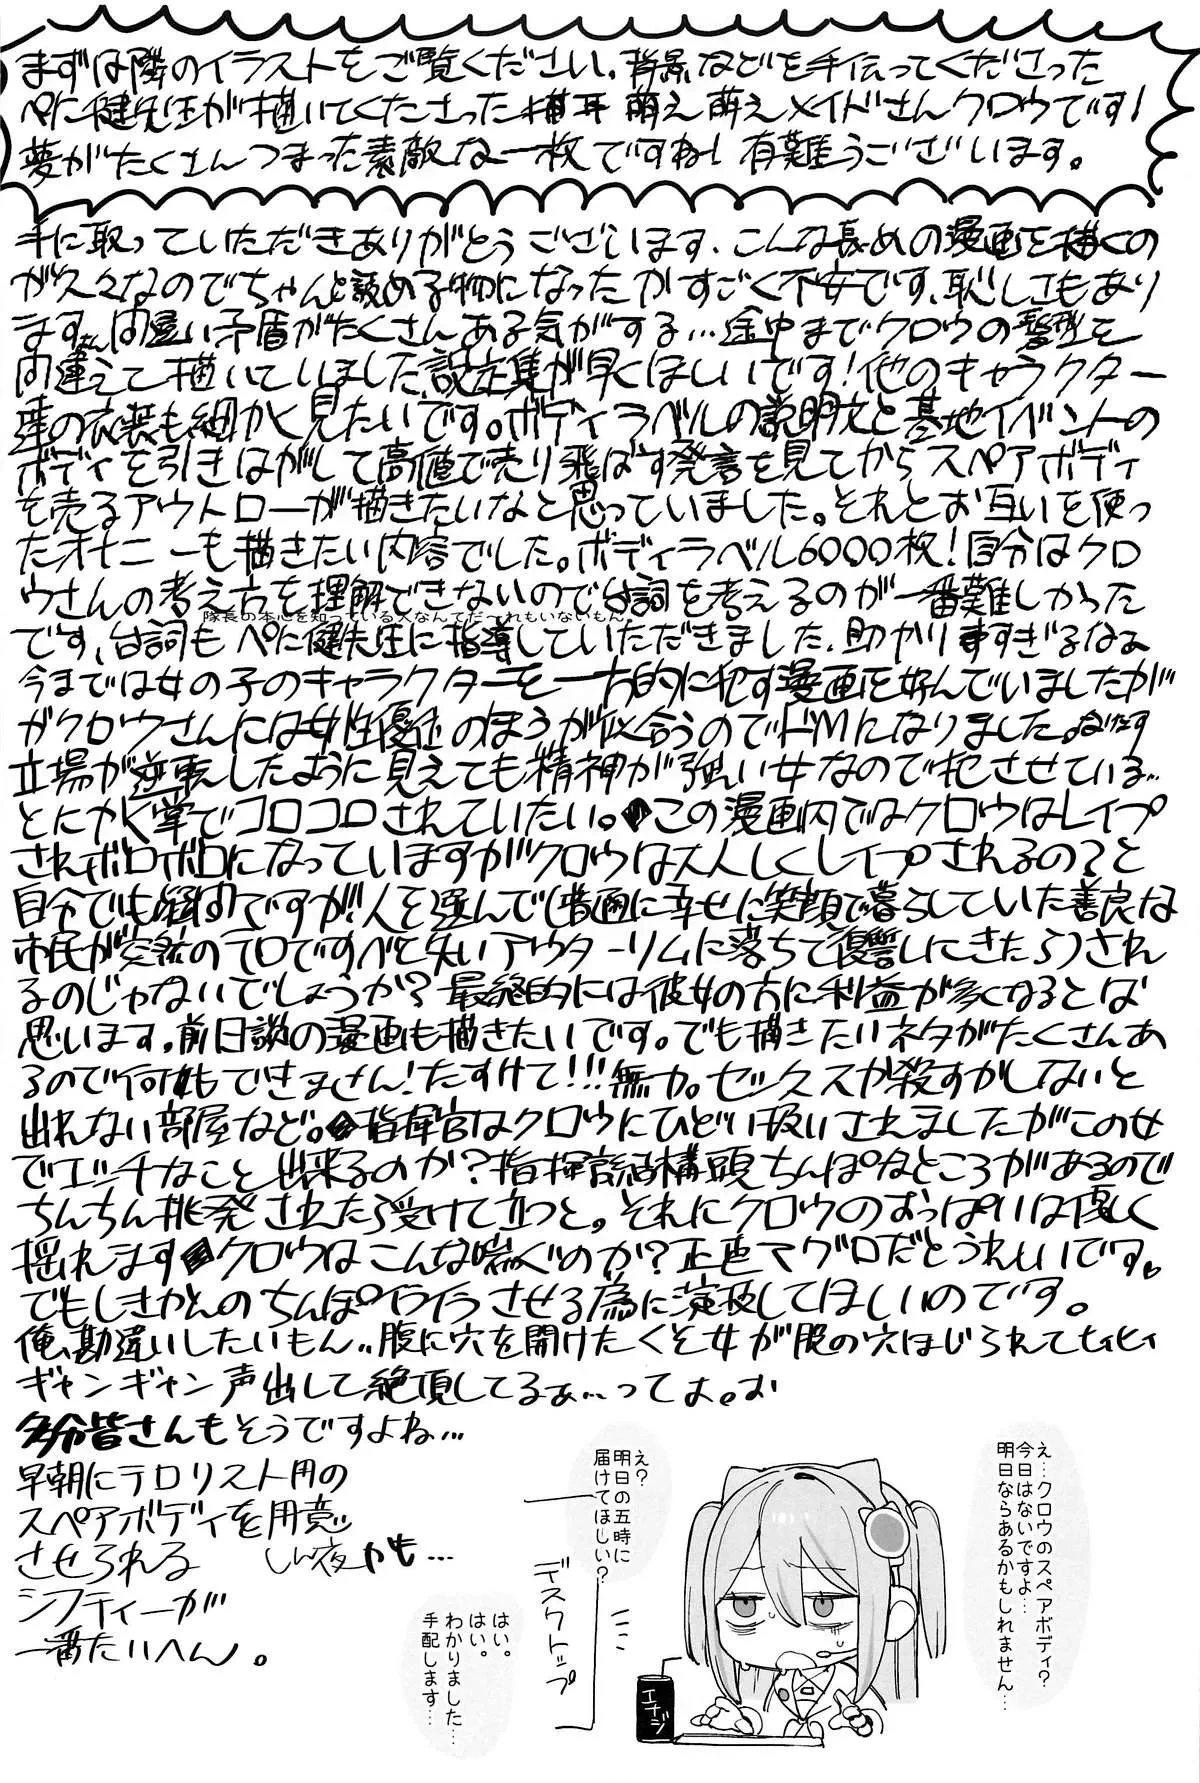 まずは隣のイラストをご覧ください。背景などを手伝ってくださった
ぺに健先生が描いてくださった猫耳 萌え萌えメイドさんクロウです!
夢がたくさんつまった素敵な一枚ですね! 有難うございます。
手に取っていただきありがとうございます、こんな長めの漫画を描くの
が久々なのでちゃんと読め子物になったかすごく不安です、恥しさもあり
ます。間違い矛盾がたくさんある気がする…途中までクロウの髪型を
間違えて描いていました設定集が早くほしいです!他のキャラクター
達の衣装も細かく見たいです。ボディラベルの説明文と基地イベントの
ボディを引きはがして高値で売り飛ばす発言を見てからスペアボディ
を売るアウトローが描きたいなと思っていました。それとお互いを使っ
たオナニーも描きたい内容でした。ボディラベル6000枚!自分はクロ
ウさんの考え方を理解できないので台詞を考えるのが一番難しかった
隊長の本心を知っている人なんてだ〜れもいないもん。
です、台詞もぺに健先生に指導していただきました、助かりますすぎるなぁ
今までは女の子のキャラクターを一方的に犯す漫画を好んでいましたが
がクロウさんには女性優位のほうが似合うのでドMになりました。
立場が逆転したように見えても精神が強い女なので犯させている…
とにかく掌でコロコロされていたい。この漫画内ではクロウはレイプ
されボロボロになっていますがクロウは大人しくレイプされるの?と
自分でも疑問ですが!人を選んで(普通に幸せに笑顔で暮らしていた善良な
市民が突然のテロですべて失いアウターリムに落ちて復讐しにきたら)され
るのじゃないでしょうか?最終的には彼女の方に利益が多くなるとは
思います。前日談の漫画も描きたいです。でも描きたいネタがたくさんあ
るので何もできません!たすけて!!!無力。セックスか殺すかしないと
出れない部屋など。指揮官はクロウにひどい扱いされましたがこの女
でエッチなこと出来るのか?指揮官結構頭ちんぽなところがあるので
ちんちん挑発されたら受けて立つと。それにクロウのおっぱいは優しく
揺れます クロウはこんな喘ぐのか?正直マグロだとうれしいです。
でもしきかんのちんぽイライラさせる為に演技してほしいのです。
俺、勘違いしたいもん、腹に穴を開けたくそ女が股の穴ほじられてヒィヒィ
ギャンギャン声出して絶頂してるぁ…ってよ。お
多分皆さんもそうですよね…
早朝にテロリスト用の
スペアボディを用意
させられる しん夜かも…
シフティーが
一番たいへん。
え…クロウのスペアボディ?
今日はないですよ…
明日ならあるかもしれません…
え?
明日の五時に
届けてほしい?
デスクトップ
はい。
はい。
わかりました…
手配します…
エナジ